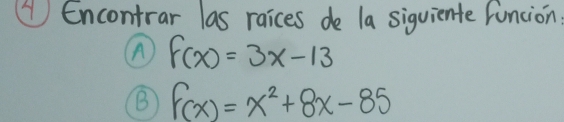 4 Encontrar las raíces de la siguiente función:
A f(x) = 3x - 13
B f(x) = x² + 8x - 85